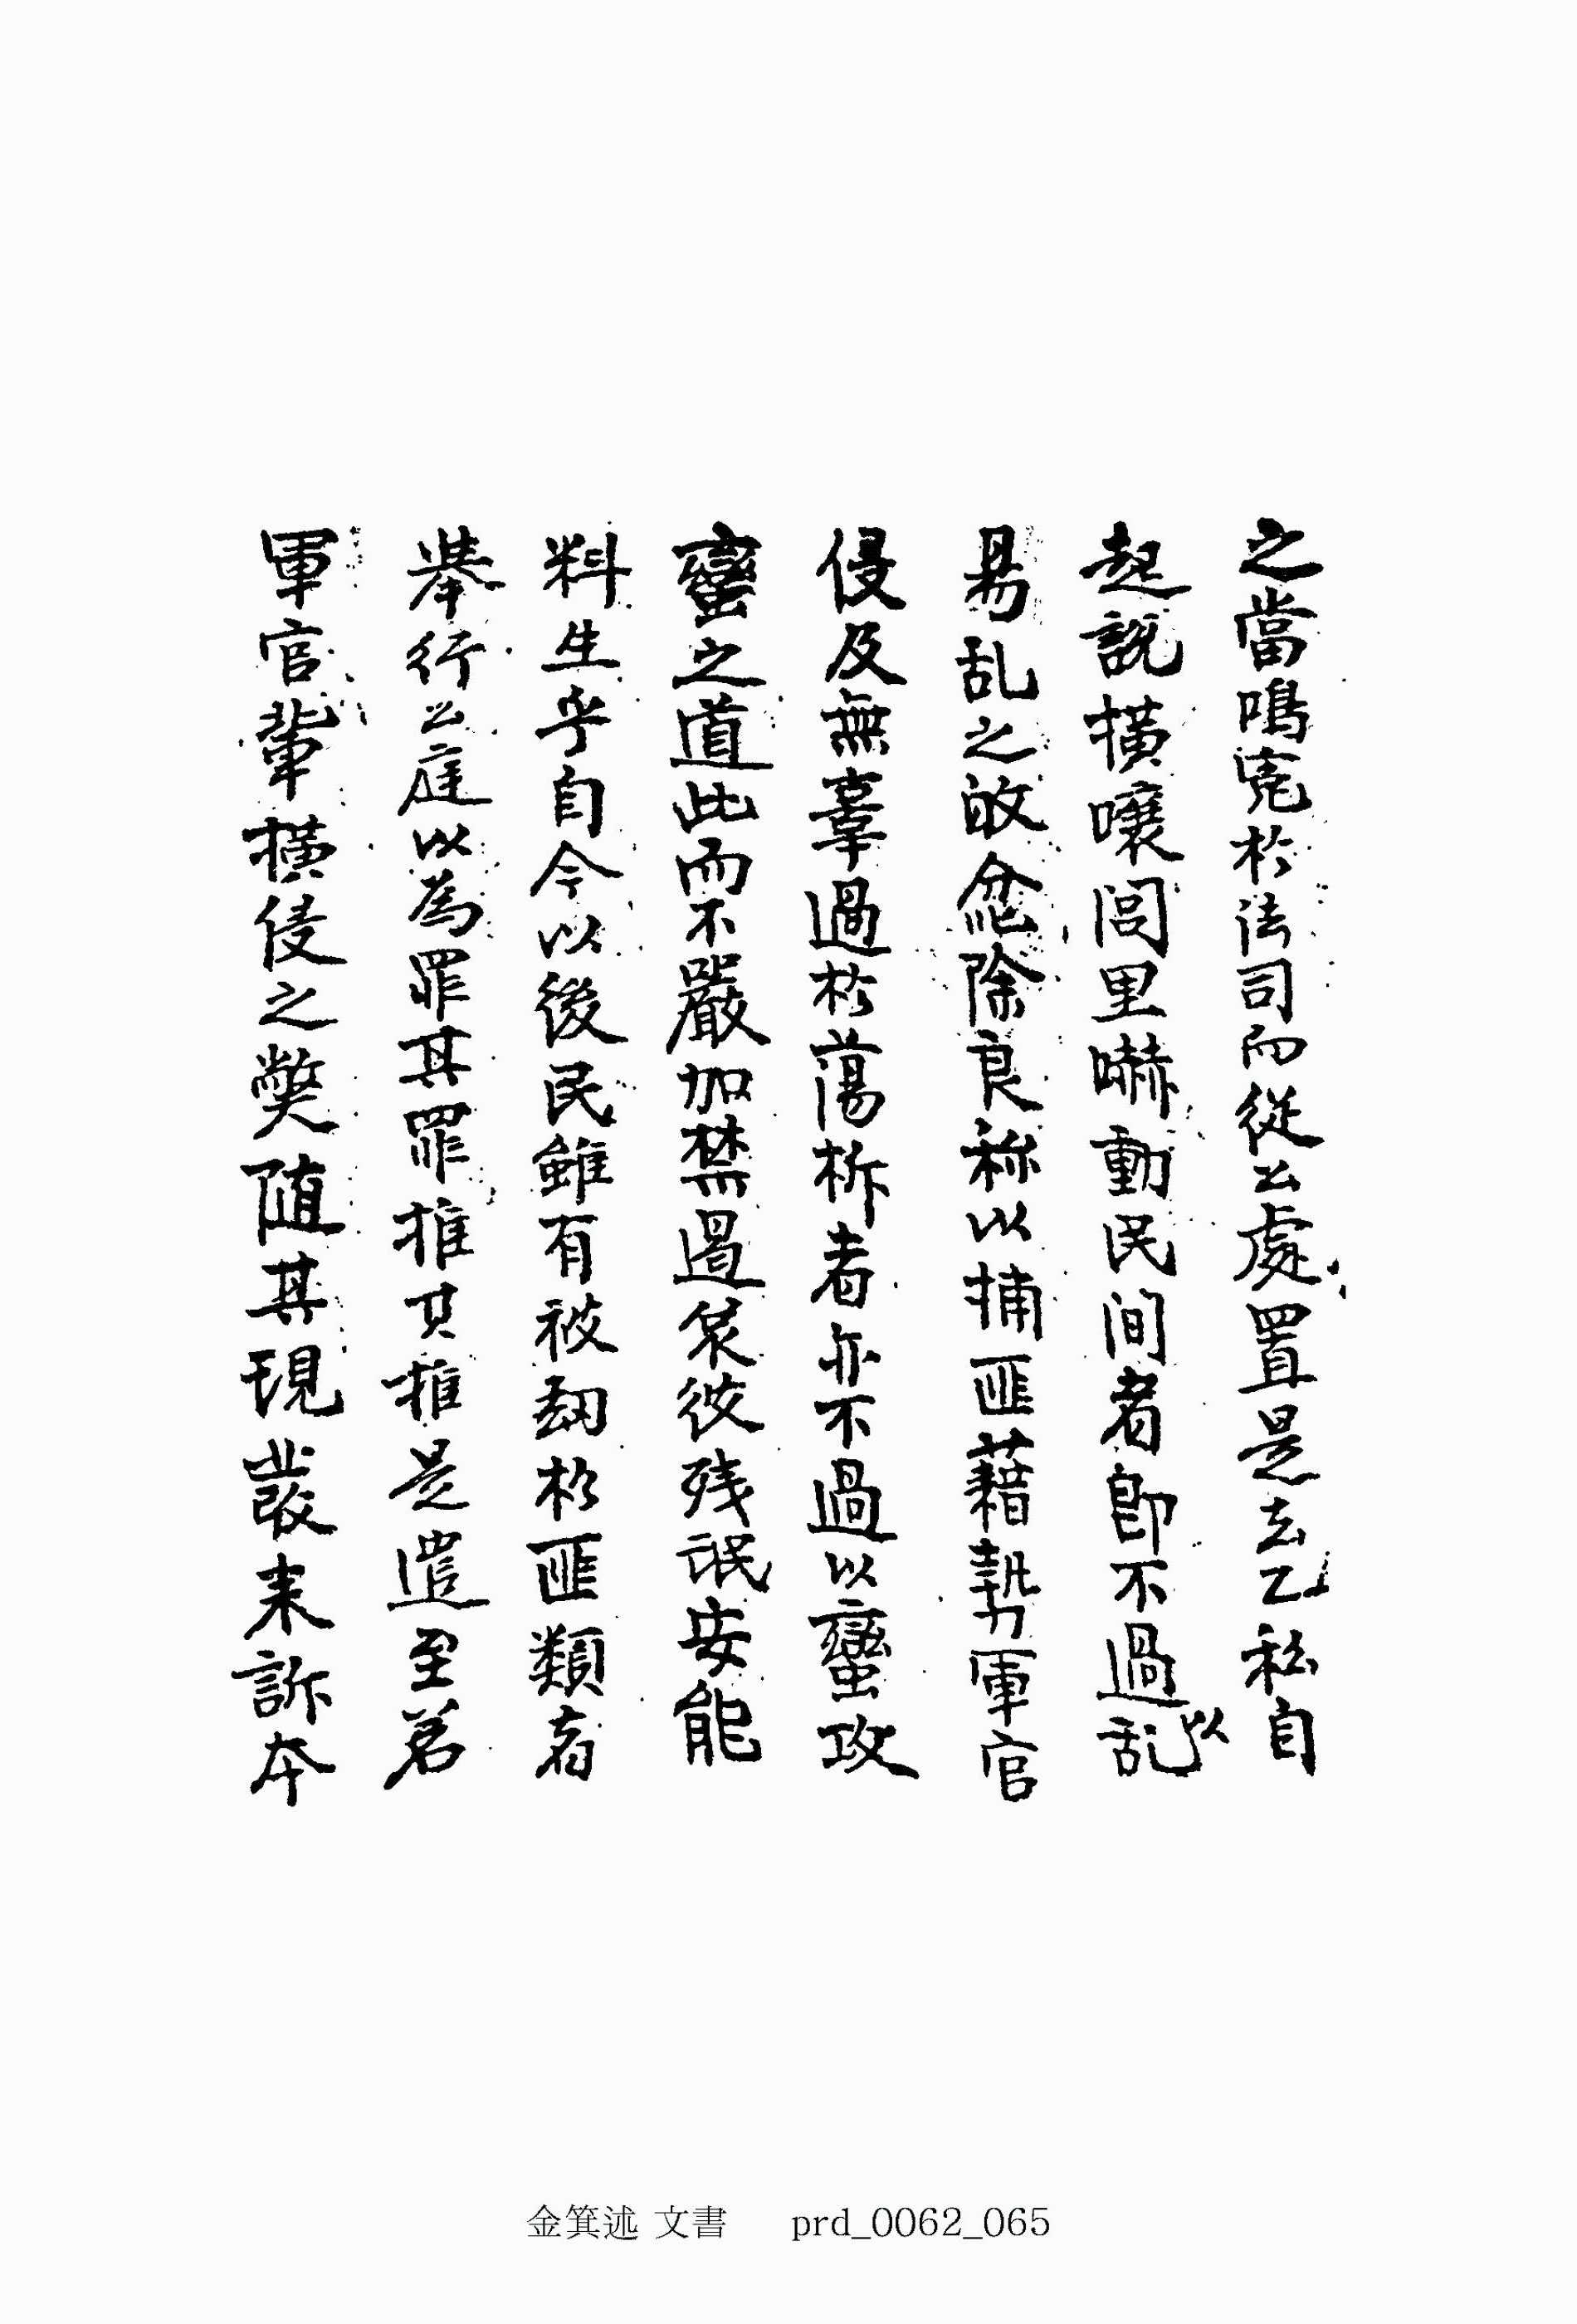 之當鳴寃於法司而從公處置是去乙私自
起說橫嚷閭里嚇動民間者卽不過以乱
易乱之政除良称以捕匪藉勢軍官
侵及無辜過於蕩柝者亦不過以蠻攻
蠻之道此而不嚴加禁遏哀彼残氓安能
料生乎自今以後民雖有被刼於匪類者
擧行公庭以為罪其罪推其推是遣至若
軍官輩橫侵之獘随其現裴來訴本
金箕述 文書 prd_0062_065